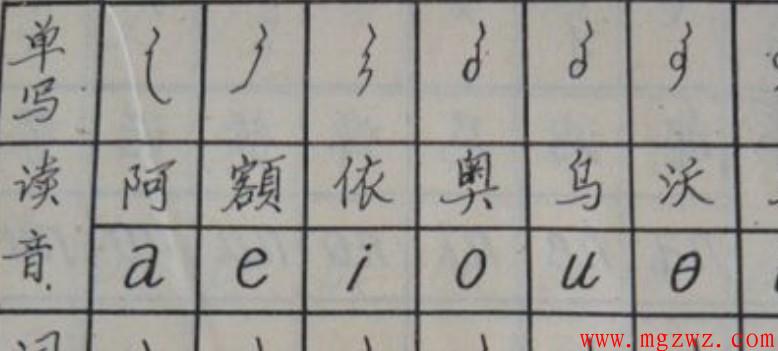 单写 ᠠ ᠡ ᠢ ᠣ ᠤ ᠥ
读音 阿 額 依 奥 乌 沃
a e i o u ө
www.mgzwz.com